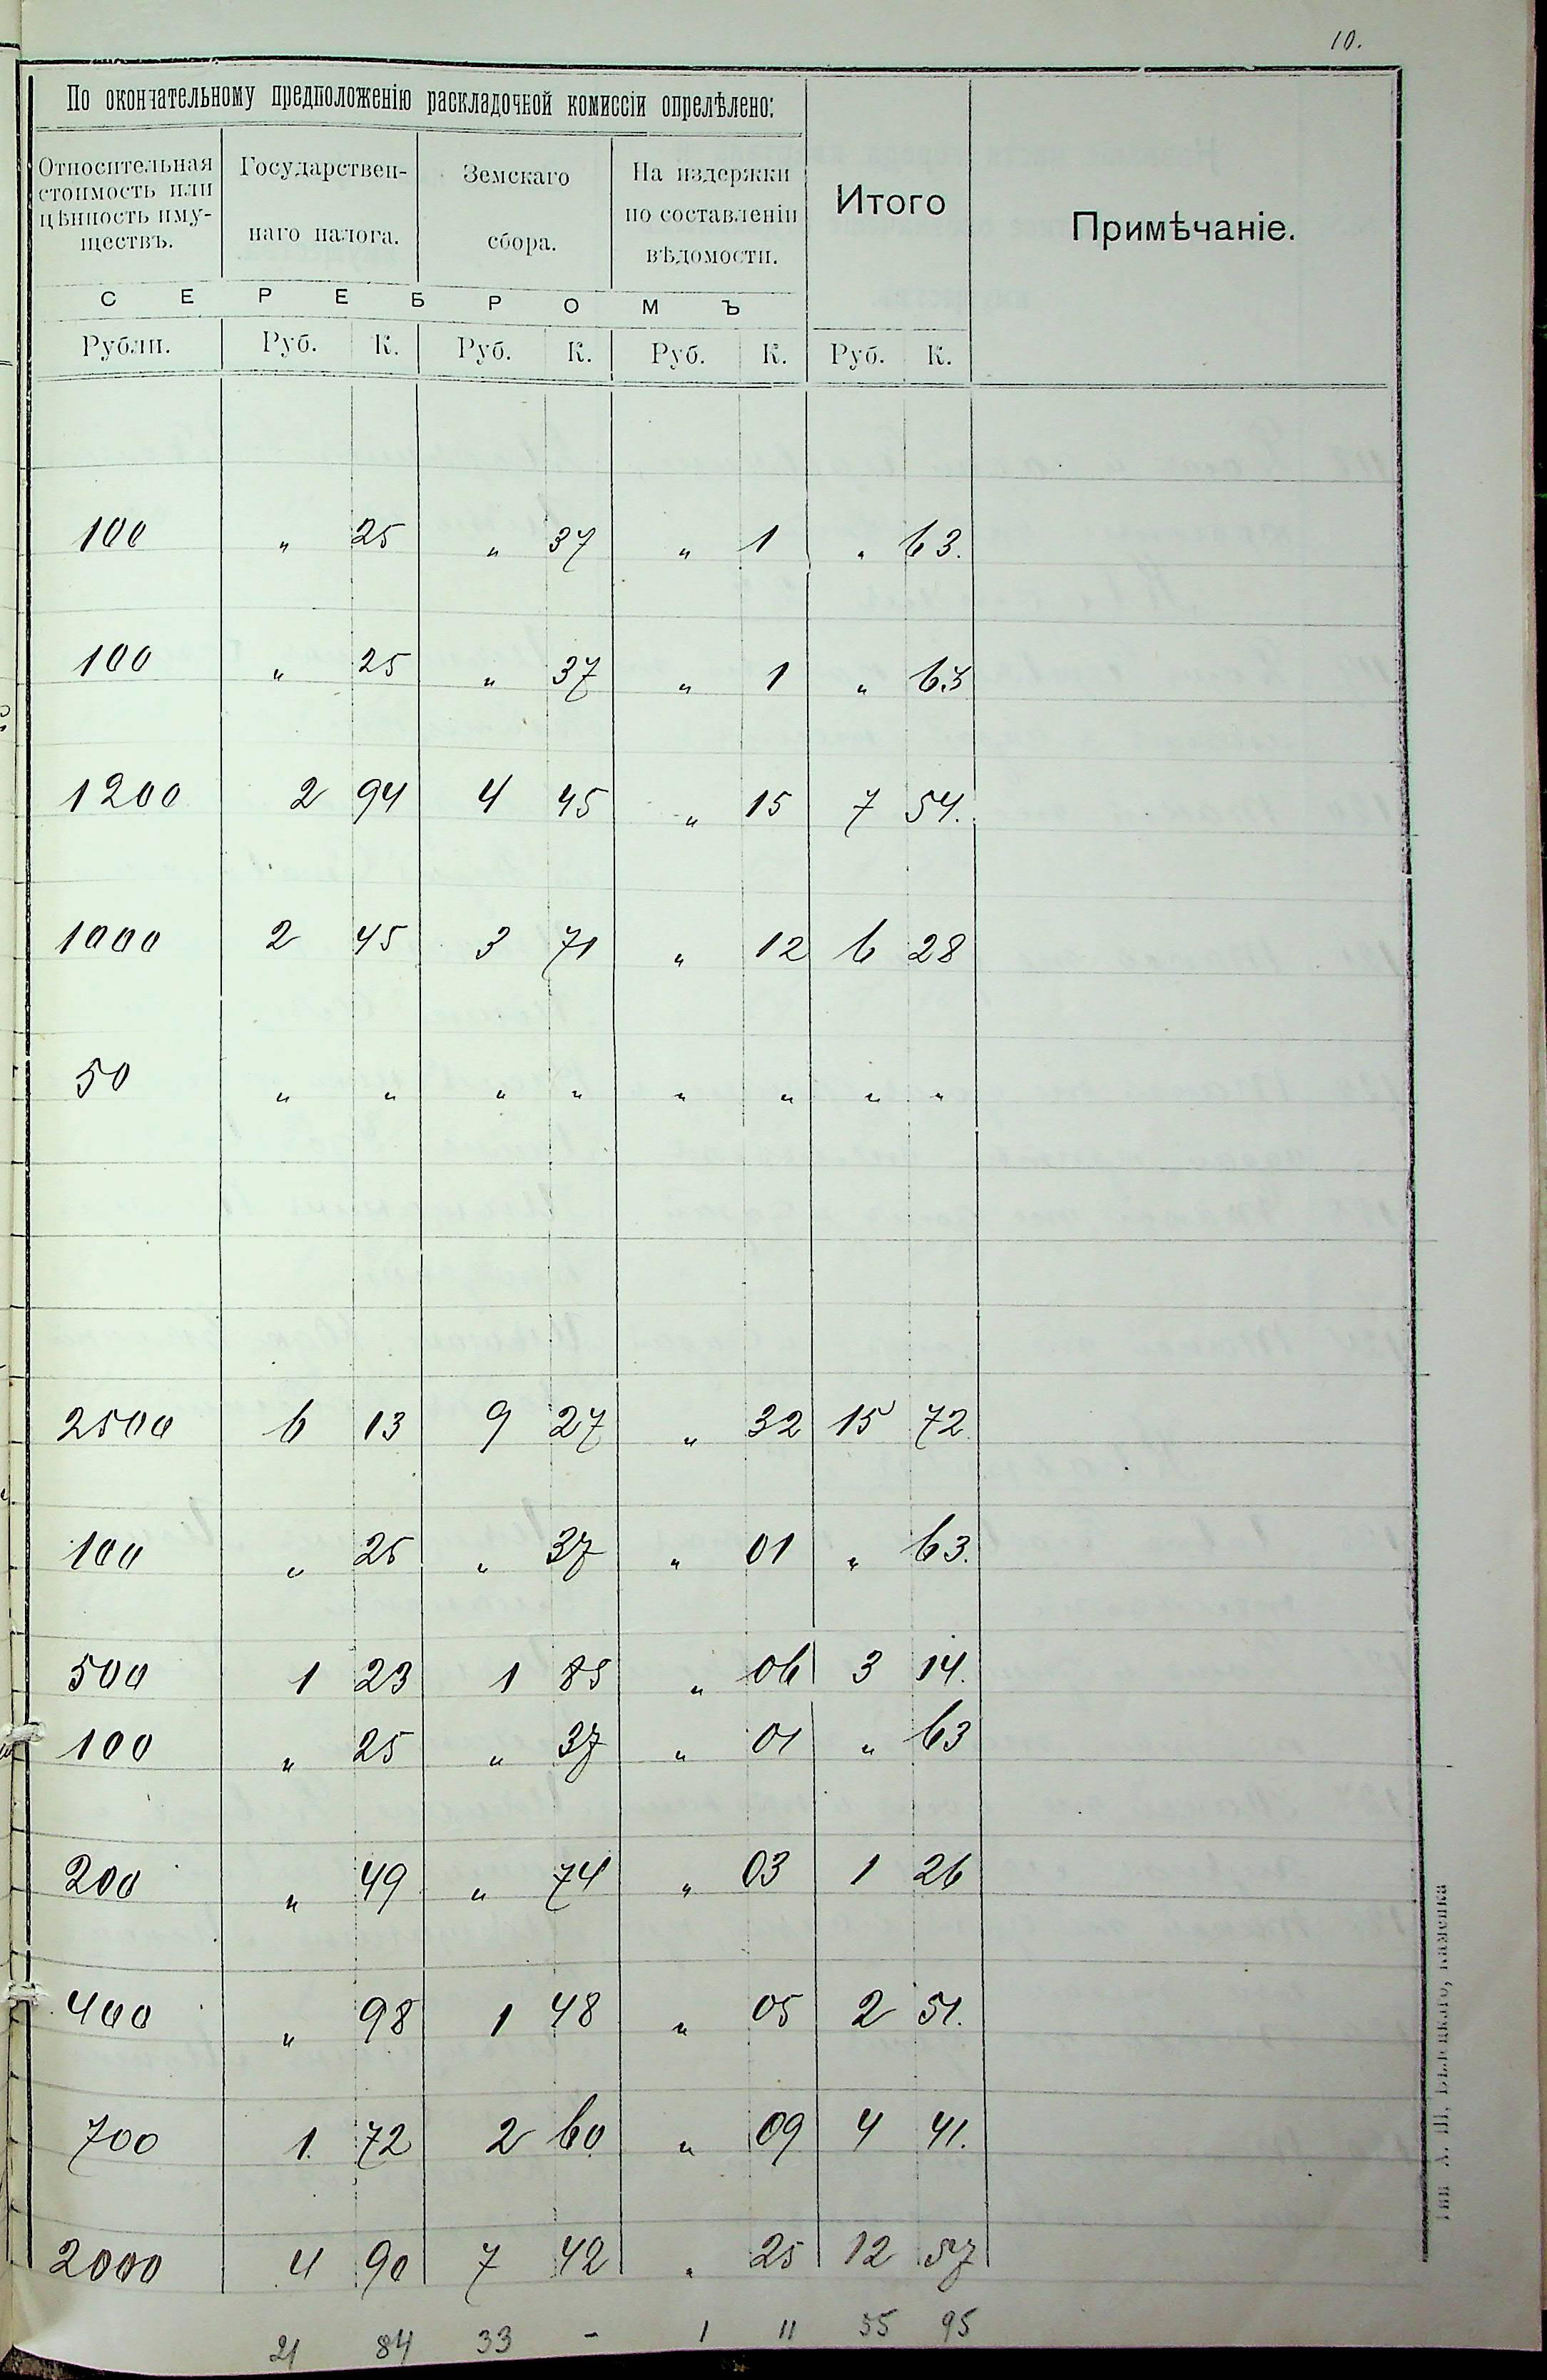 10.
По окончательному предположенію раскладочной комиссіи опредѣлено:
Относительная стоимость или цѣнность имуществъ.
Государственнаго налога.
Земскаго сбора.
На издержки по составленіи вѣдомости.
Итого
Примѣчаніе.
С Е Р Е Б Р О М Ъ
Рубли. Руб. К. Руб. К. Руб. К. Руб. К.
100 " 25 " 37 " 1 " 63.
100 " 25 " 37 " 1 " 63
1200 2 94 4 45 " 15 7 54.
1000 2 45 3 71 " 12 6 28
50 " " " " " " " "
2500 6 13 9 27 " 32 15 72
100 " 25 " 37 " 01 " 63.
500 1 23 1 85 " 06 3 14.
100 " 25 " 37 " 01 " 63
200 " 49 " 74 " 03 1 26
400 " 98 1 48 " 05 2 51.
700 1. 72 2 60 " 09 4 41.
2000 4 90 7 42 " 25 12 57
21 84 33 - 1 11 55 95